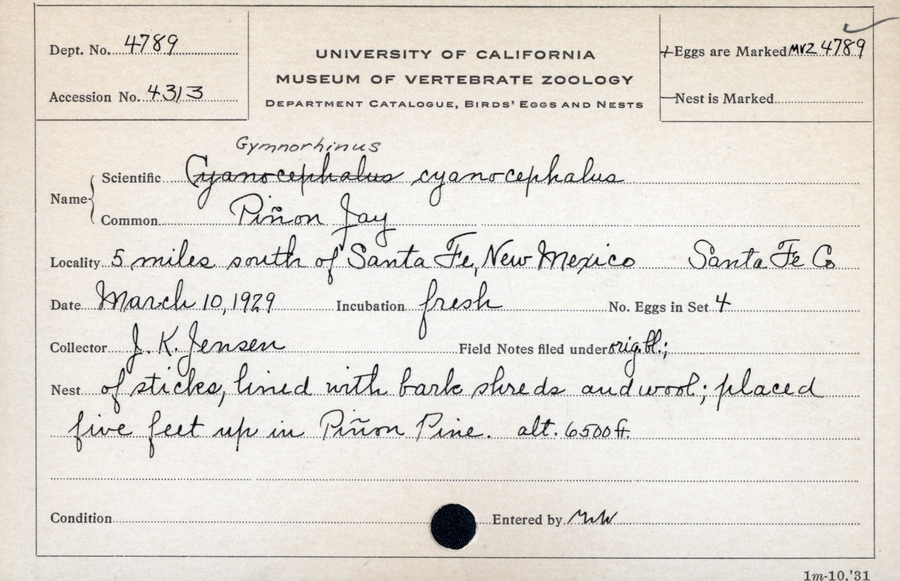 Dept. No. 4789
Accession No. 4313
UNIVERSITY OF CALIFORNIA
MUSEUM OF VERTEBRATE ZOOLOGY
DEPARTMENT CATALOGUE, BIRDS' EGGS AND NESTS
Eggs are Marked MVZ 4789
Nest is Marked
Gymnorhinus
Name Scientific Cyanocephalus cyanocephalus
Common Piñon Jay
Locality 5 miles south of Santa Fe, New Mexico Santa Fe Co
Date March 10, 1929 Incubation fresh No. Eggs in Set 4
Collector J. K. Jensen Field Notes filed under orig. bl.;
Nest of sticks, lined with bark shreds and wool; placed
five feet up in Piñon Pine. alt. 6500 ft.
Condition Entered by
1m-10,'31